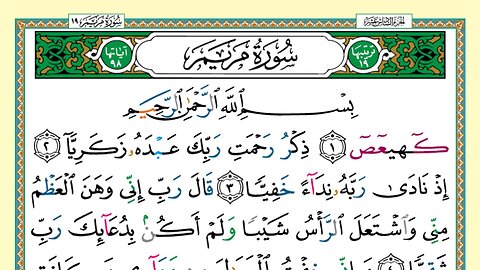 الجزء السادس عشر سورة مريم ١٩
ترتيبها ١٩ سورة مريم آياتها ٩٨
بِسْمِ اللَّهِ الرَّحْمَٰنِ الرَّحِيمِ
كٓهيعٓصٓ ﴿١﴾ ذِكْرُ رَحْمَتِ رَبِّكَ عَبْدَهُۥ زَكَرِيَّآ ﴿٢﴾
إِذْ نَادَىٰ رَبَّهُۥ نِدَآءً خَفِيًّا ﴿٣﴾ قَالَ رَبِّ إِنِّي وَهَنَ الْعَظْمُ
مِنِّي وَاشْتَعَلَ الرَّأْسُ شَيْبًا وَلَمْ أَكُنۢ بِدُعَآئِكَ رَبِّ